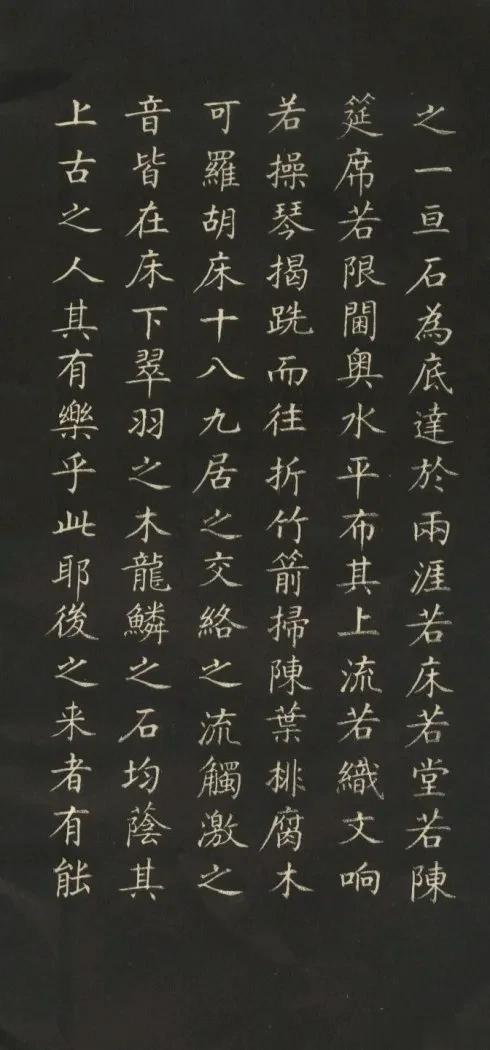 之一亘石為底達於兩涯若床若堂若陳
筵席若限閫奥水平布其上流若織文响
若操琴揭跣而往折竹箭掃陳葉排腐木
可羅胡床十八九居之交絡之流觸激之
音皆在床下翠羽之木龍鱗之石均蔭其
上古之人其有樂乎此耶後之来者有能